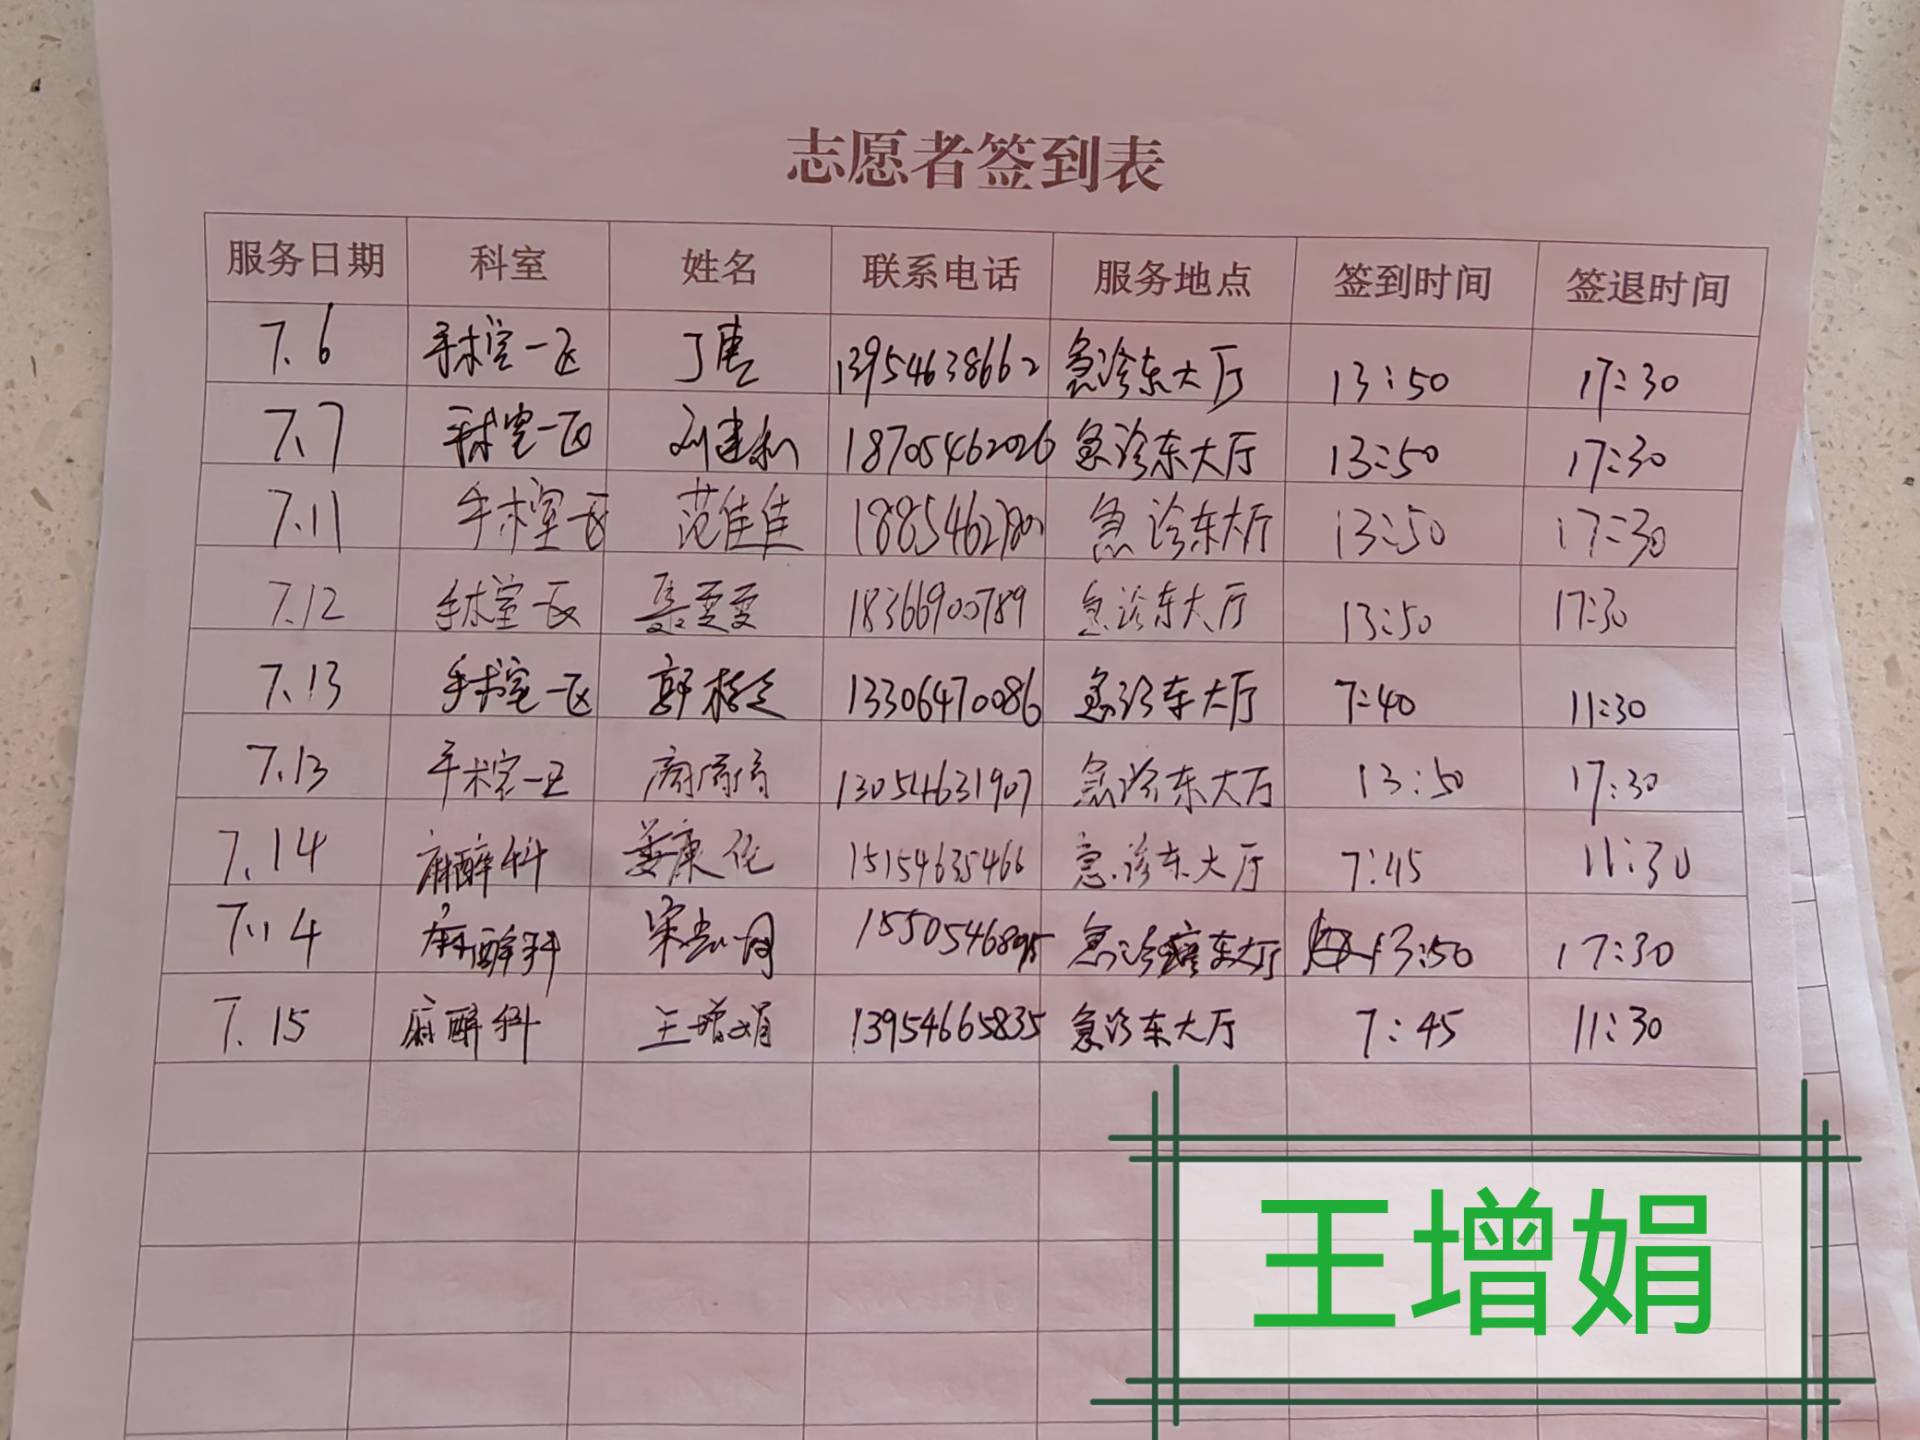 志愿者签到表
服务日期 科室 姓名 联系电话 服务地点 签到时间 签退时间
7.6 手术室一区 丁 13954638662 急诊东大厅 13:50 17:30
7.7 手术室一区 刘建 18705462026 急诊东大厅 13:50 17:30
7.11 手术室一区 范佳佳 急诊东大厅 13:50 17:30
7.12 手术室一区 聂雯雯 18366900789 急诊东大厅 13:50 17:30
7.13 手术室一区 郭 13306470086 急诊东大厅 7:40 11:30
7.13 手术室一区 13054631907 急诊东大厅 13:50 17:30
7.14 麻醉科 姜康 15154635466 急诊东大厅 7:45 11:30
7.14 麻醉科 宋 15505468 急诊东大厅 13:50 17:30
7.15 麻醉科 王增娟 13954665835 急诊东大厅 7:45 11:30
王增娟